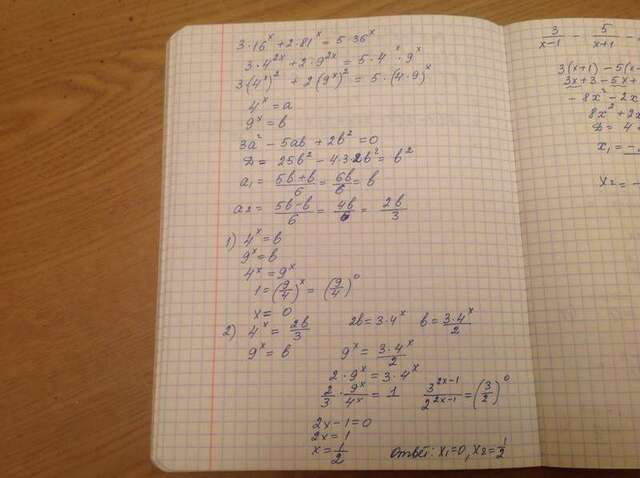 3·16^x + 2·81^x = 5·36^x
3·4^{2x} + 2·9^{2x} = 5·4^x·9^x
3(4^x)^2 + 2(9^x)^2 = 5·(4·9)^x
4^x = a
9^x = b
3a^2 - 5ab + 2b^2 = 0
D = 25b^2 - 4·3·2b^2 = b^2
a_1 = \frac{5b+b}{6} = \frac{6b}{6} = b
a_2 = \frac{5b-b}{6} = \frac{4b}{6} = \frac{2b}{3}
1) 4^x = b
9^x = b
4^x = 9^x
1 = (\frac{9}{4})^x = (\frac{9}{4})^0
x = 0
2) 4^x = \frac{2b}{3} 2b = 3·4^x b = \frac{3·4^x}{2}
9^x = b 9^x = \frac{3·4^x}{2}
2·9^x = 3·4^x
\frac{2}{3}·\frac{9^x}{4^x} = 1 \frac{3^{2x-1}}{2^{2x-1}} = (\frac{3}{2})^0
2x-1=0
2x=1
x=\frac{1}{2}
Ответ: x_1=0, x_2=\frac{1}{2}
\frac{3}{x-1} - \frac{5}{x+1} -
3(x+1) - 5(x-
3x+3-5x+
-8x^2-2x
8x^2+2x
D = 4
x_1 = -
x_2 = -